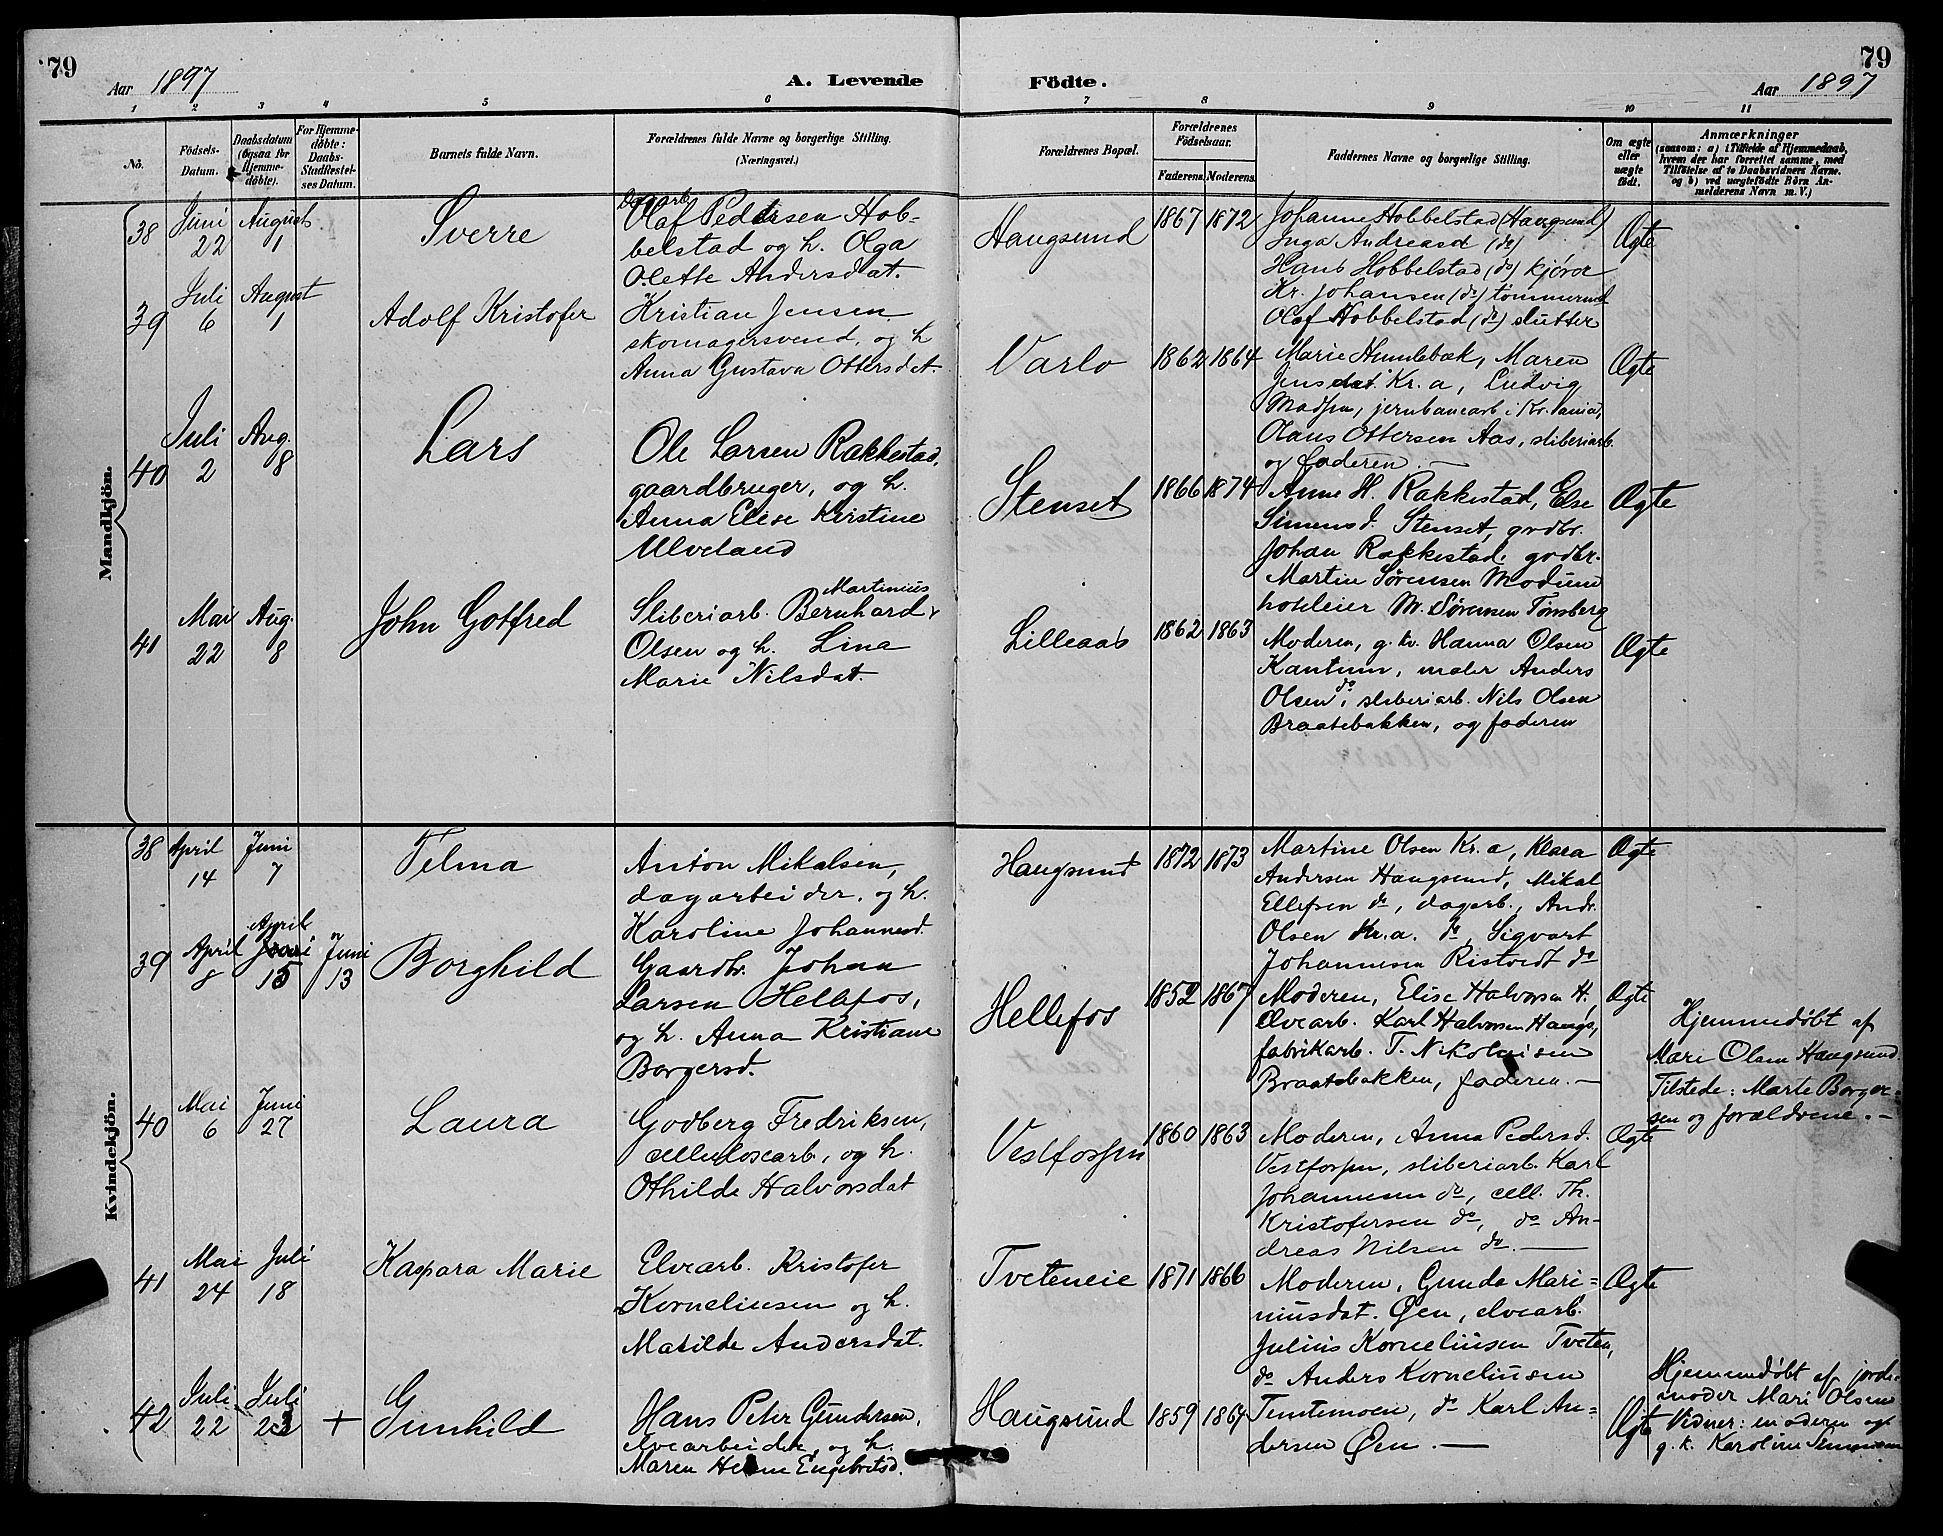 79
Aar 1897
A. Levende
Födte.
Aar 1897
79
1 2 3 4 5 6 7 8 9 10 11
No.
Födsels-
Datum.
Daabsdatum
(ogsaa for
Hjemme-
döbte).
For Hjemme-
döbte:
Daabs-
Stadfæstel-
ses Datum.
Barnets fulde Navn.
Forældrenes fulde Navne og borgerlige Stilling.
(Næringsvei.)
Forældrenes Bopæl.
Forældrenes
Födselsaar.
Faderens. Moderens.
Faddernes Navne og borgerlige Stilling.
Om ægte
eller
uægte
födt.
Anmærkninger
(saasom: a) i Tilfælde af Hjemmedaab,
hvem der har forrettet samme, med
Tilföielse af to Daabsvidners Navne.
og b) ved uægtefödte Börn An-
melderens Navn m. V.)
Mandkjön.
38
Juni
22
August
1
Sverre
Dagarb.
Olaf Pedersen Hob-
belstad og h. Olga
Olette Andersdat.
Haugsund
1867 1872
Johanne Hobbelstad (Haugsund)
Inga Andreasd (do)
Hans Hobbelstad (do) kjörer
Kr. Johansen (do) tömmerm
Olaf Hobbelstad (do) slutter
Ægte
39
Juli
6
August
1
Adolf Kristofer
Kristian Jensen
skomagersvend, og h
Anna Gustava Ottersdat.
Varlo
1862 1864
Marie Humlebæk, Maren
Jensdat. Kr.a, Ludvig
Madsen, jernbanearb i Kr.ania,
Olaus Ottersen Aas, sliberiarb.
og faderen. —
Ægte
40
Juli
2
Aug.
8
Lars
Ole Larsen Rakkestad,
gaardbruger, og h.
Anna Elise Kirstine
Ulveland
Stenset
1866 1874
Anne H. Rakkestad, Else
Simensd. Stenset, grdbr.
Johan Rakkestad, grdbr.
Martin Sörensen Modum
hoteleier M. Sörensen Tönsberg
Ægte
41
Mai
22
Aug.
8
John Gotfred
Martinius
Sliberiarb. Bernhard
Olsen og h. Lina
Marie Nilsdat.
Lilleaas
1862 1863
Moderen, g. kv. Hanna Olsen
Kantum, maler Anders
Olsen do, sliberiarb. Nils Olsen
Braatebakken, og faderen
Ægte
Kvindekjön.
38
April
14
Juni
7
Telma
Anton Mikalsen,
dagarbeider, og h.
Karoline Johannesd.
Haugsund
1872 1873
Martine Olsen Kr.a, Klara
Andersen Haugsund, Mikal
Ellefsen do, dagarb., Andr.
Olsen Kr.a. do, Sigvart
Johannesen Ristvedt do
Ægte
39
April
8
April
15
Juni
13
Borghild
Gaardbr. Johan
Larsen Hellefos,
og h. Anna Kristiane
Borgersd.
Hellefos
1852 1867
Moderen, Elise Halvorsen H.
Elvearb. Karl Halvorsen Haugs,
fabrikarb. T. Nikolaisen
Braatebakken, faderen. —
Ægte
Hjemmedöbt af
Mari Olsen Haugsund.
Tilstede: Marte Borger-
sen og forældrene. —
40
Mai
6
Juni
27
Laura
Godberg Fredriksen,
cellulosearb, og h.
Othilde Halvorsdat
Vestfossen
1860 1863
Moderen, Anna Pedersd.
Vestfossen, sliberiarb. Karl
Johannesen do, cell. Th.
Kristofersen do, do An-
dreas Nilsen do. —
Ægte
41
Mai
24
Juli
18
Kaspara Marie
Elvearb. Kristofer
Korneliusen og h.
Matilde Andersdat.
Tveteneie
1871 1866
Moderen, Gunda Mari-
niusdat. Øen, elvearb.
Julius Korneliusen Tveten,
do Anders Korneliusen
Temtemoen, do Karl An-
dersen Øen. —
Ægte
42
Juli
22
Juli
23
+
Gunhild
Hans Peter Gundersen,
elvearbeider, og h.
Maren Helene Engebretsd.
Haugsund
1859 1864
Ægte
Hjemmedöbt af jorde-
moder Mari Olsen
Vidner: moderen og
g. k. Karoline Simensen